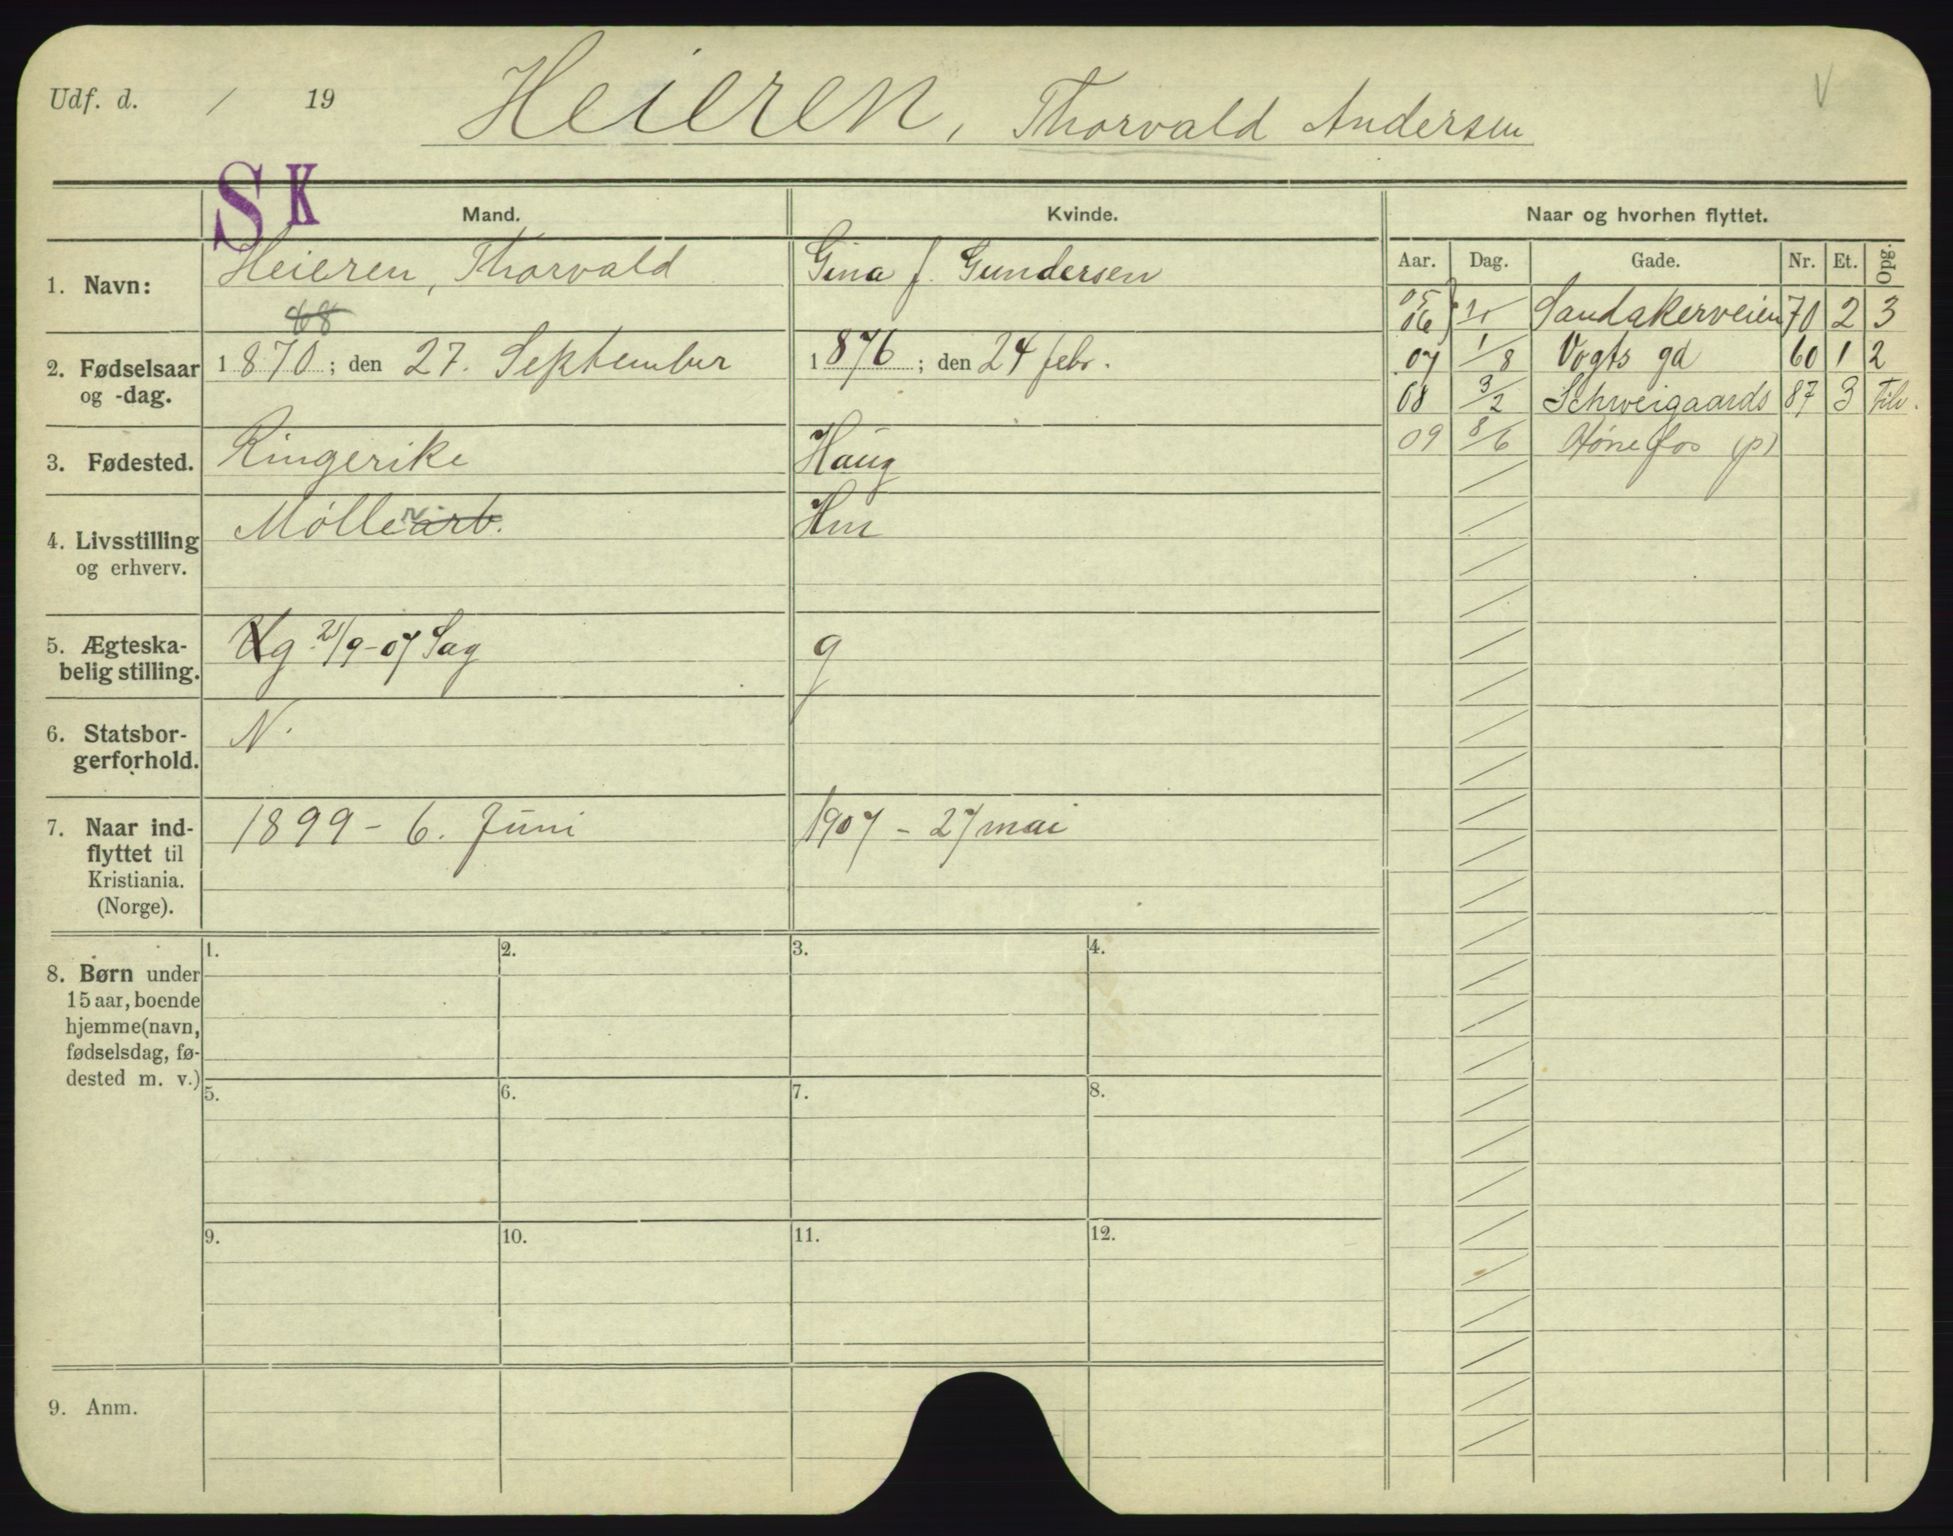 Udf. d. / 19 Heieren, Thorvald Andersen V
SK
Mand. Kvinde. Naar og hvorhen flyttet.
Aar. Dag. Gade. Nr. Et. Opg.
1. Navn: Heieren, Thorvald Gina f. Gundersen
2. Fødselsaar og -dag. 1870; den 27. September 1876; den 24 febr.
3. Fødested. Ringerike Haug
4. Livsstilling og erhverv. Møller arb. Hm
5. Ægteska-
belig stilling. g. 21/9-07 Sag g
6. Statsbor-
gerforhold. N.
7. Naar ind-
flyttet til
Kristiania.
(Norge).
1899 - 6. Juni 1907 - 27 mai
05
06 Sandakerveien 70 2 3
07 1/8 Vogts gd 60 1 2
08 3/2 Schweigaards 87 3 Tilv.
09 8/6 Hønefos (p)
8. Børn under
15 aar, boende
hjemme (navn,
fødselsdag, fø-
dested m. v.)
1. 2. 3. 4.
5. 6. 7. 8.
9. 10. 11. 12.
9. Anm.